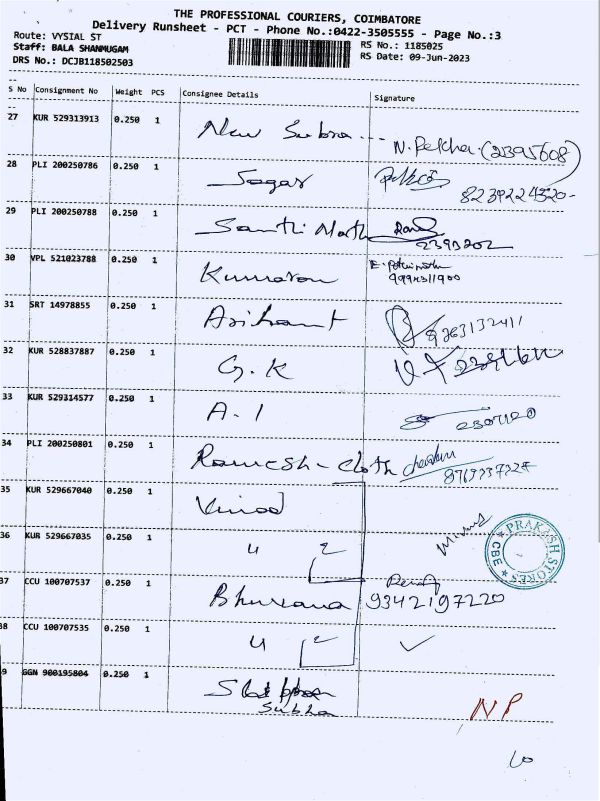 THE PROFESSIONAL COURIERS, COIMBATORE
Delivery Runsheet - PCT - Phone No.:0422-3505555 - Page No.:3
Route: VYSIAL ST
Staff: BALA SHANMUGAM RS No.: 1185025
DRS No.: DCJB118502503 RS Date: 09-Jun-2023
S No Consignment No Weight PCS Consignee Details Signature
27 KUR 529313913 0.250 1 New Subra --- N. Pekha (2395608)
28 PLI 200250786 0.250 1 Sagar
29 PLI 200250788 0.250 1 Santhi Nath 2393202
30 VPL 521023788 0.250 1 Kumaran
31 SRT 14978855 0.250 1 Arihant 9363132411
32 KUR 528837887 0.250 1 G.K
33 KUR 529314577 0.250 1 A-1
34 PLI 200250801 0.250 1 Ramesh - cloth
35 KUR 529667040 0.250 1 Vinod
36 KUR 529667035 0.250 1 4 2
PRAKASH STORES
★ CBE ★
37 CCU 100707537 0.250 1 Bhuvana 9342197220
38 CCU 100707535 0.250 1 4 2 ✓
9 GGN 900195804 0.250 1
Subha
NP